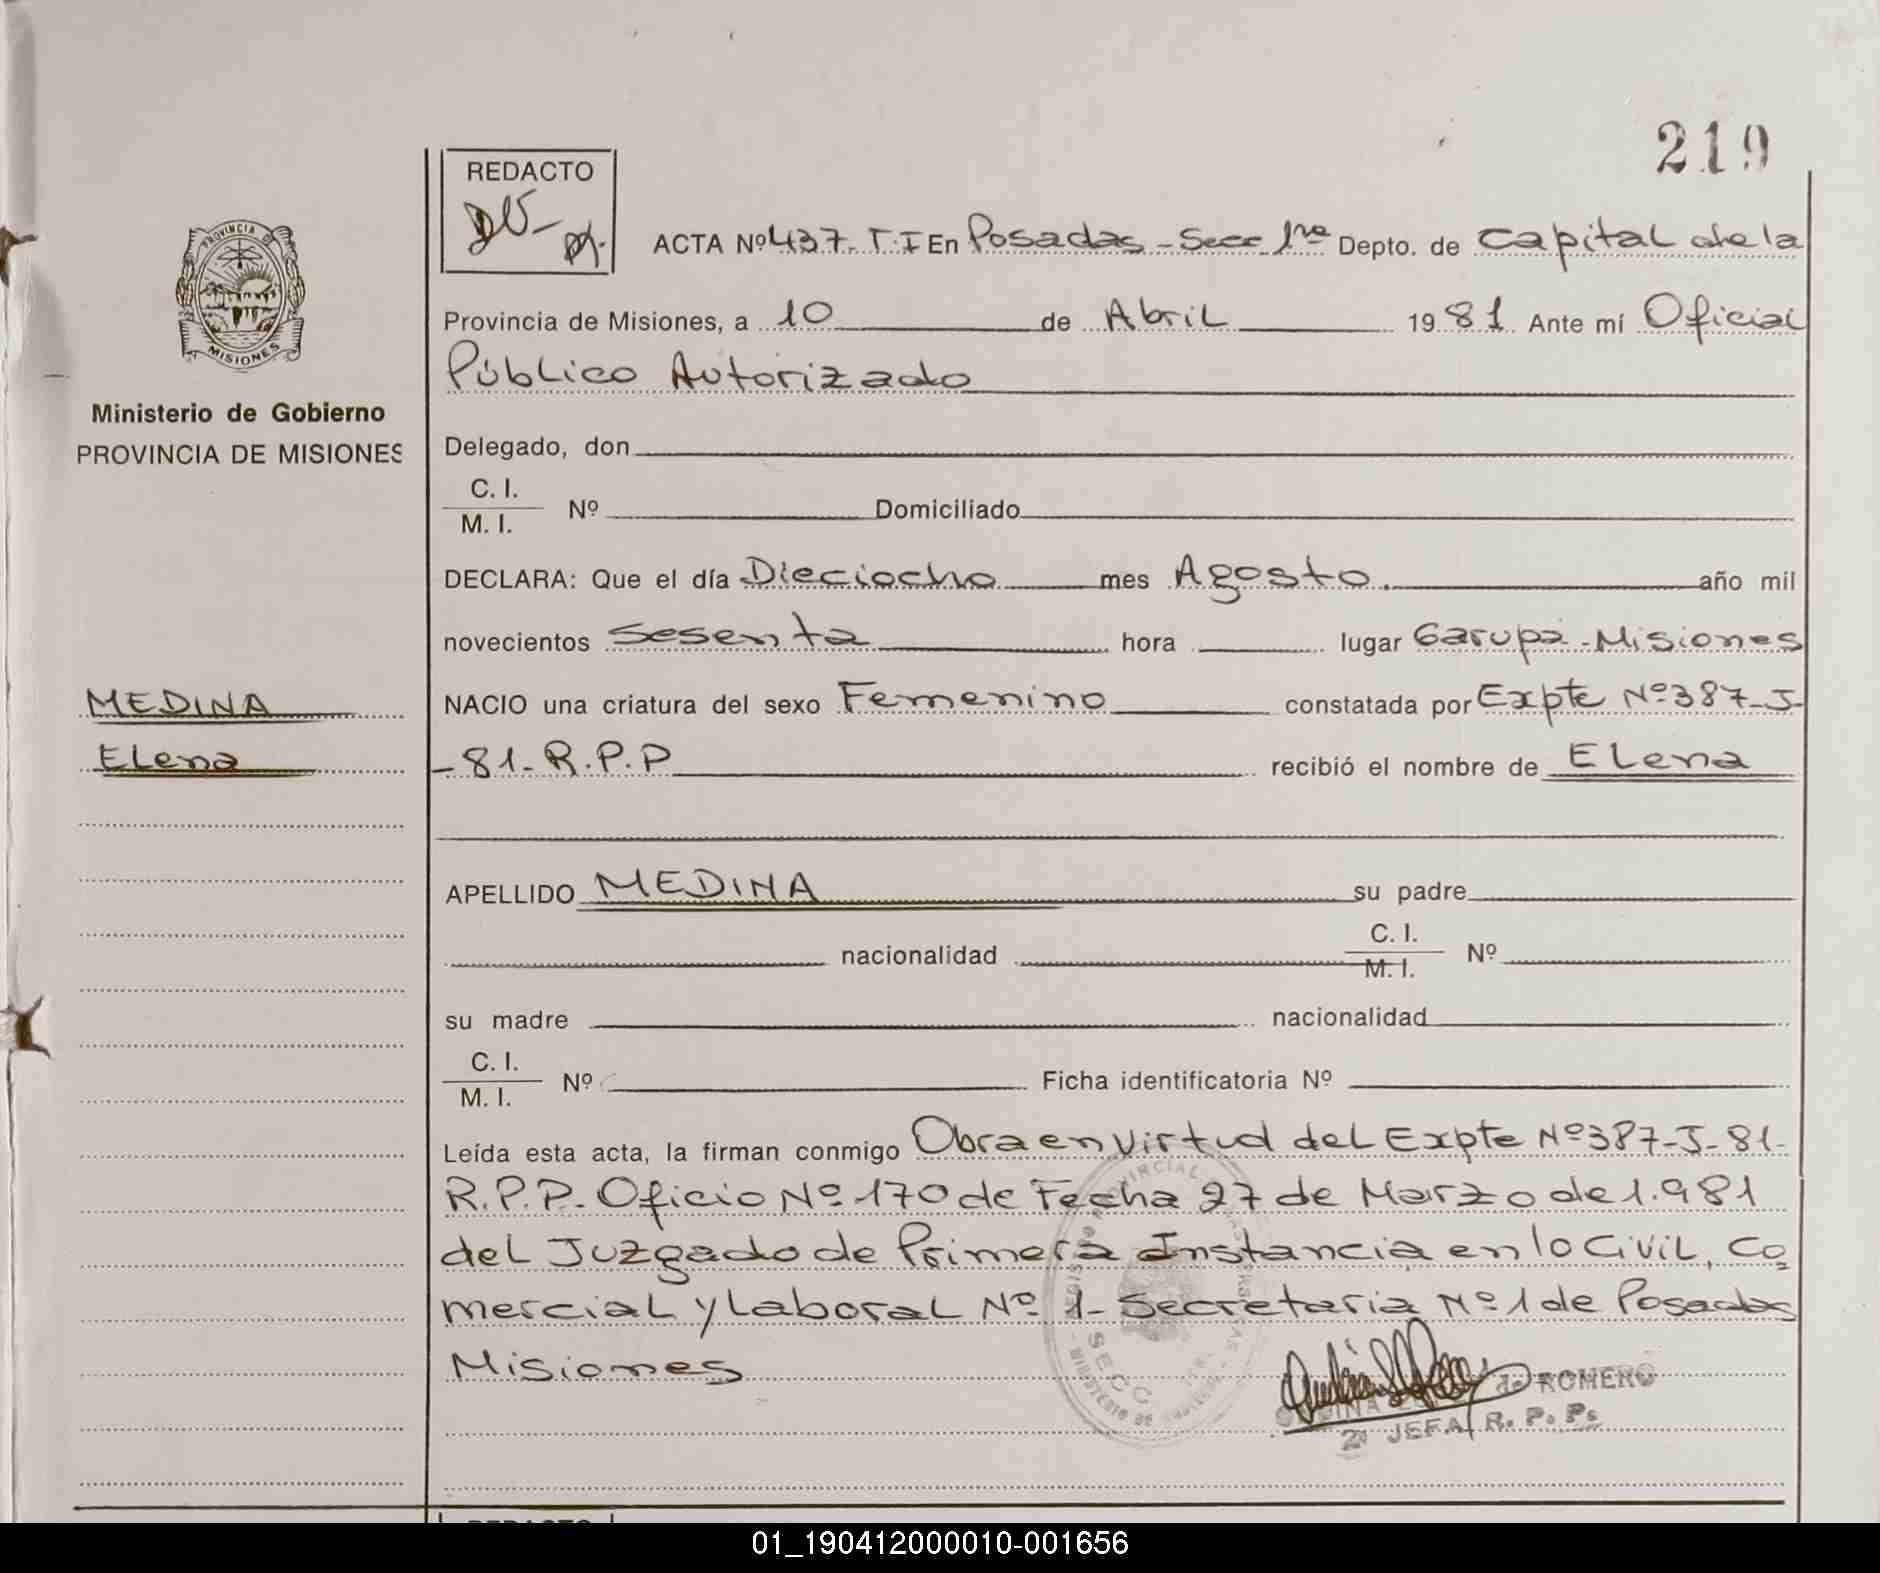 219
REDACTO
ACTA Nº 437-T-I En Posadas - Secc 1ra Depto. de Capital de la
Provincia de Misiones, a 10 de Abril 1981 Ante mí Oficial
Público Autorizado
PROVINCIA DE
MISIONES
Ministerio de Gobierno
PROVINCIA DE MISIONES
Delegado, don
C. I.
M. I. Nº Domiciliado
DECLARA: Que el día Dieciocho mes Agosto. año mil
novecientos Sesenta hora lugar Garupá - Misiones
MEDINA
Elena
NACIO una criatura del sexo Femenino constatada por Expte Nº 387-J-
-81-R.P.P recibió el nombre de Elena
APELLIDO MEDINA su padre
nacionalidad C. I.
M. I. Nº
su madre nacionalidad
C. I.
M. I. Nº Ficha identificatoria Nº
Leída esta acta, la firman conmigo Obra en virtud del Expte Nº 387-J-81-
R.P.P. Oficio Nº 170 de Fecha 27 de Marzo de 1.981
del Juzgado de Primera Instancia en lo Civil, Co
mercial y Laboral Nº 1- Secretaria Nº 1 de Posadas
Misiones
de ROMERO
2ª JEFA R. P. Ps
SECC
REDACTO
01_190412000010-001656